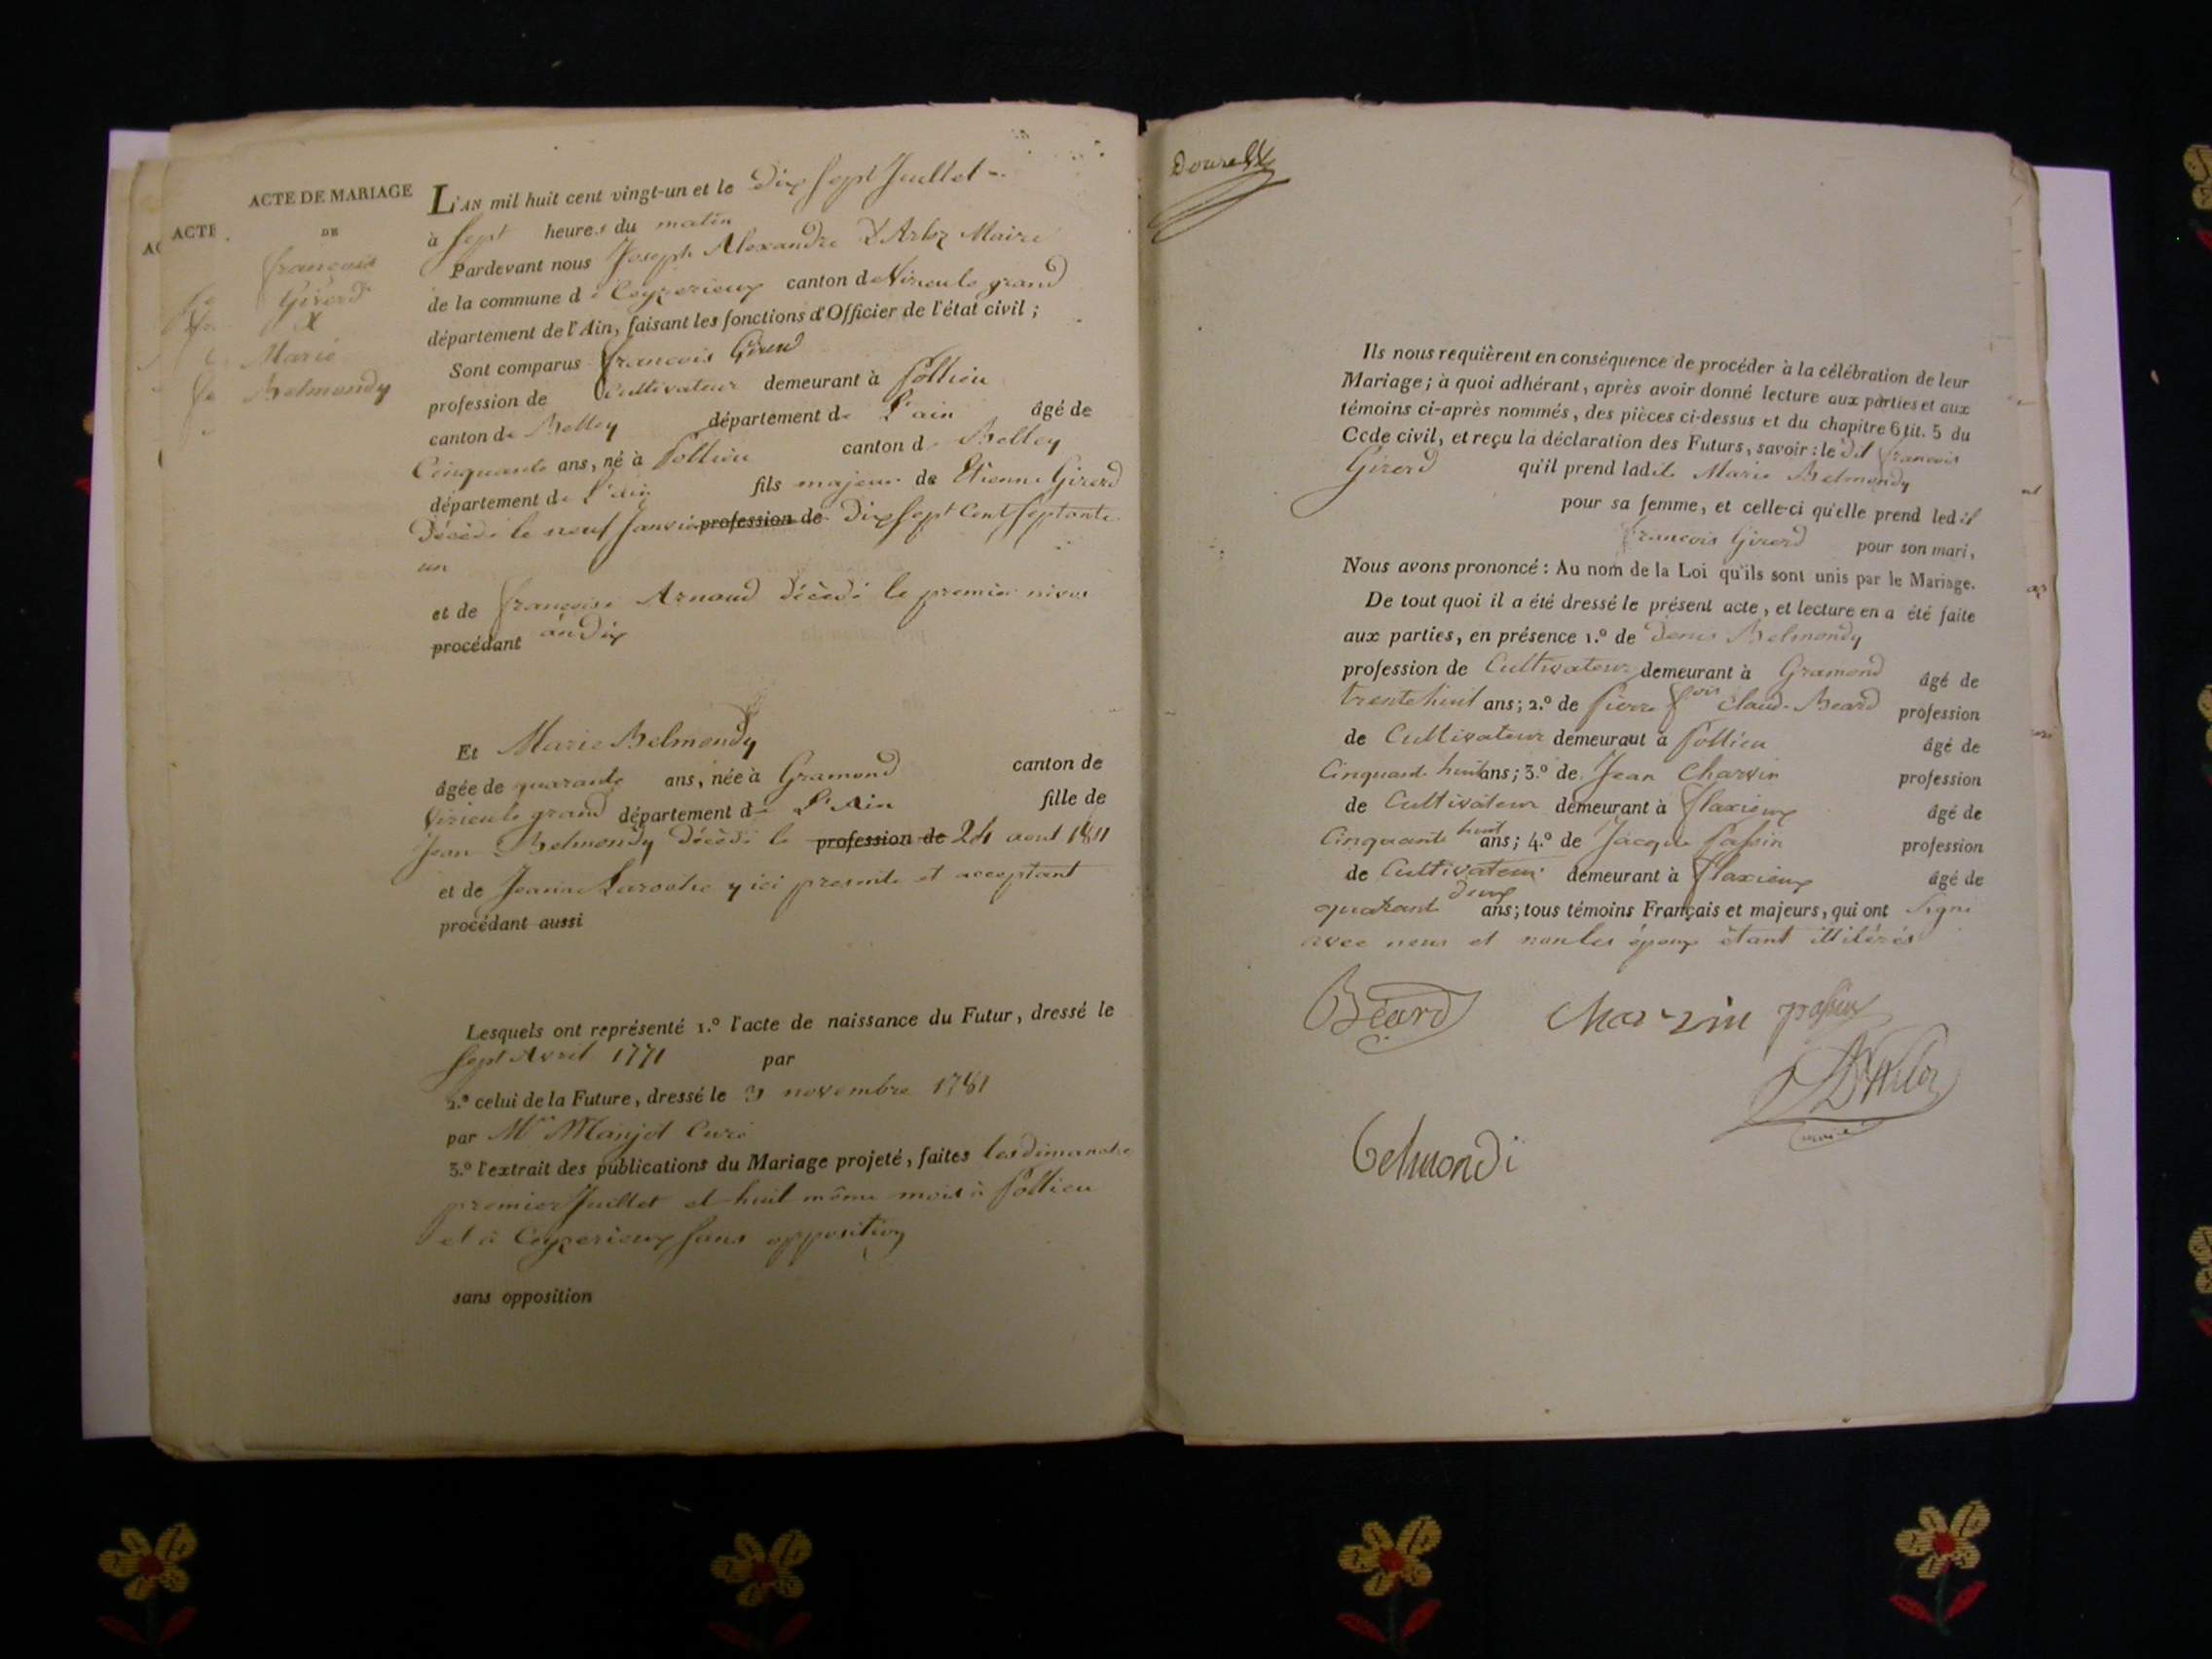 ACTE DE MARIAGE
DE
françois
Girerd
X
Marie
Belmondy
ACTE
L'AN mil huit cent vingt-un et le Dix sept Juillet
à sept heures du matin
Pardevant nous Joseph Alexandre D'Arloz Maire
de la commune de Ceyzerieux canton de Virieu le grand
département de l'Ain, faisant les fonctions d'Officier de l'état civil ;
Sont comparus françois Girerd
profession de Cultivateur demeurant à Pollieu
canton de Belley département de L'ain âgé de
Cinquante ans, né à Pollieu canton de Belley
département de L'ain fils majeur de Etienne Girerd
Décédé le neuf Janvier profession de Dix sept Cent septante
un
et de françoise Arnaud décédé le premier nivos
procédant an Dix
Et Marie Belmondy
âgée de quarante ans, née à Gramond canton de
Virieu le grand département de L'Ain fille de
Jean Belmondy décédé le profession de 24 aout 1811
et de Jeanne Laroche y ici presente et acceptant
procédant aussi
Lesquels ont représenté 1.º l'acte de naissance du Futur, dressé le
sept Avril 1771 par
2.º celui de la Future, dressé le 3 novembre 1781
par Mr Manjot Curé
3.º l'extrait des publications du Mariage projeté, faites les dimanche
premier Juillet et huit même mois à Pollieu
et à Ceyzerieux sans opposition
sans opposition
Ils nous requièrent en conséquence de procéder à la célébration de leur
Mariage ; à quoi adhérant, après avoir donné lecture aux parties et aux
témoins ci-après nommés, des pièces ci-dessus et du chapitre 6 tit. 5 du
Code civil, et reçu la déclaration des Futurs, savoir : le dit françois
Girerd qu'il prend ladite Marie Belmondy
pour sa femme, et celle-ci qu'elle prend ledit
françois Girerd pour son mari,
Nous avons prononcé : Au nom de la Loi qu'ils sont unis par le Mariage.
De tout quoi il a été dressé le présent acte, et lecture en a été faite
aux parties, en présence 1.º de Denis Belmondy
profession de Cultivateur demeurant à Gramond âgé de
trente huit ans ; 2.º de Pierre fois Claude Beard profession
de Cultivateur demeurant à Pollieu âgé de
Cinquante huit ans ; 3.º de Jean Charvin profession
de Cultivateur demeurant à flaxieux âgé de
Cinquante huit ans ; 4.º de Jacque Passin profession
de Cultivateur demeurant à flaxieux âgé de
quarante deux ans ; tous témoins Français et majeurs, qui ont signé
avec nous et non les époux étant illitérés
Béard Charvin passin
D'Arloz
maire
belmondi